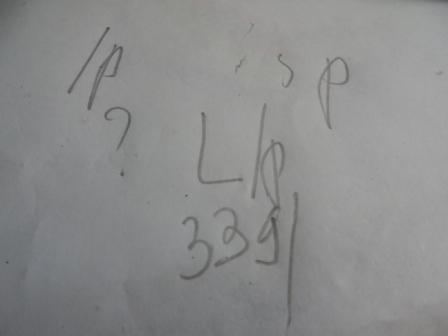 /p is p
?
L/p
3391